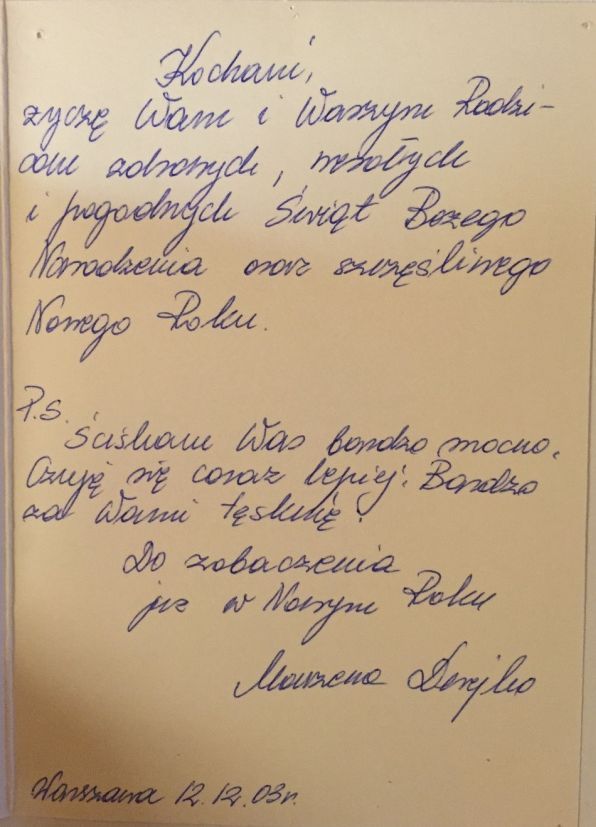 Kochani,
życzę Wam i Waszym Rodzi-
com zdrowych, wesołych
i pogodnych Świąt Bożego
Narodzenia oraz szczęśliwego
Nowego Roku.
P.S.
Ściskam Was bardzo mocno.
Czuję się coraz lepiej. Bardzo
za Wami tęsknię.
Do zobaczenia
już w Nowym Roku
Marzena
Warszawa 12.12.03r.